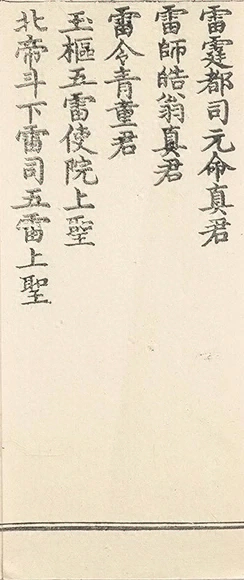 雷霆都司元命真君
雷師皓翁真君
雷令青童君
玉樞五雷使院上聖
北帝斗下雷司五雷上聖